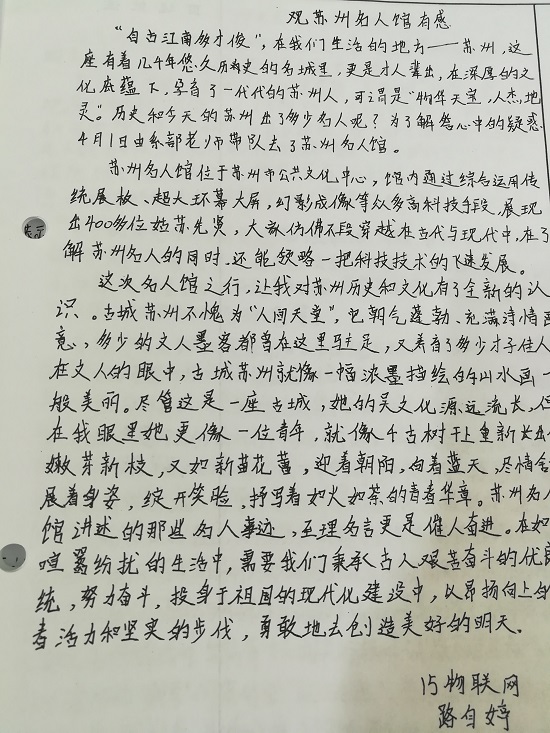 观苏州名人馆有感
"自古江南多才俊",在我们生活的地方——苏州,这
座有着几千年悠久历史的名城里,更是才人辈出,在深厚的文
化底蕴下,孕育了一代代的苏州人,可谓是"物华天宝,人杰地
灵"。历史和今天的苏州出了多少名人呢?为了解答心中的疑惑
4月1日由系部老师带队去了苏州名人馆。
苏州名人馆位于苏州市公共文化中心,馆内通过综合运用传
统展板、超大环幕大屏,幻影成像等众多高科技手段,展现
出400多位姑苏先贤,大家仿佛不段穿越在古代与现代中,在了
解苏州名人的同时,还能领略一把科技技术的飞速发展。
这次名人馆之行,让我对苏州历史和文化有了全新的认
识。古城苏州不愧为"人间天堂",它朝气蓬勃、充满诗情画
意,多少的文人墨客都曾在这里驻足,又养育了多少才子佳人
在文人的眼中,古城苏州就像一幅浓墨描绘的山水画一
般美丽。尽管这是一座古城,她的吴文化源远流长,但
在我眼里她更像一位青年,就像千古树干上重新长出
嫩芽新枝,又如新苗花蕾,迎着朝阳,向着蓝天,尽情舒
展着身姿,绽开笑脸,抒写着如火如荼的青春华章。苏州名人
馆讲述的那些名人事迹,至理名言更是催人奋进。在如
喧嚣纷扰的生活中,需要我们秉承古人艰苦奋斗的优良
统,努力奋斗,投身于祖国的现代化建设中,以昂扬向上的
春活力和坚实的步伐,勇敢地去创造美好的明天。
15物联网
路自婷